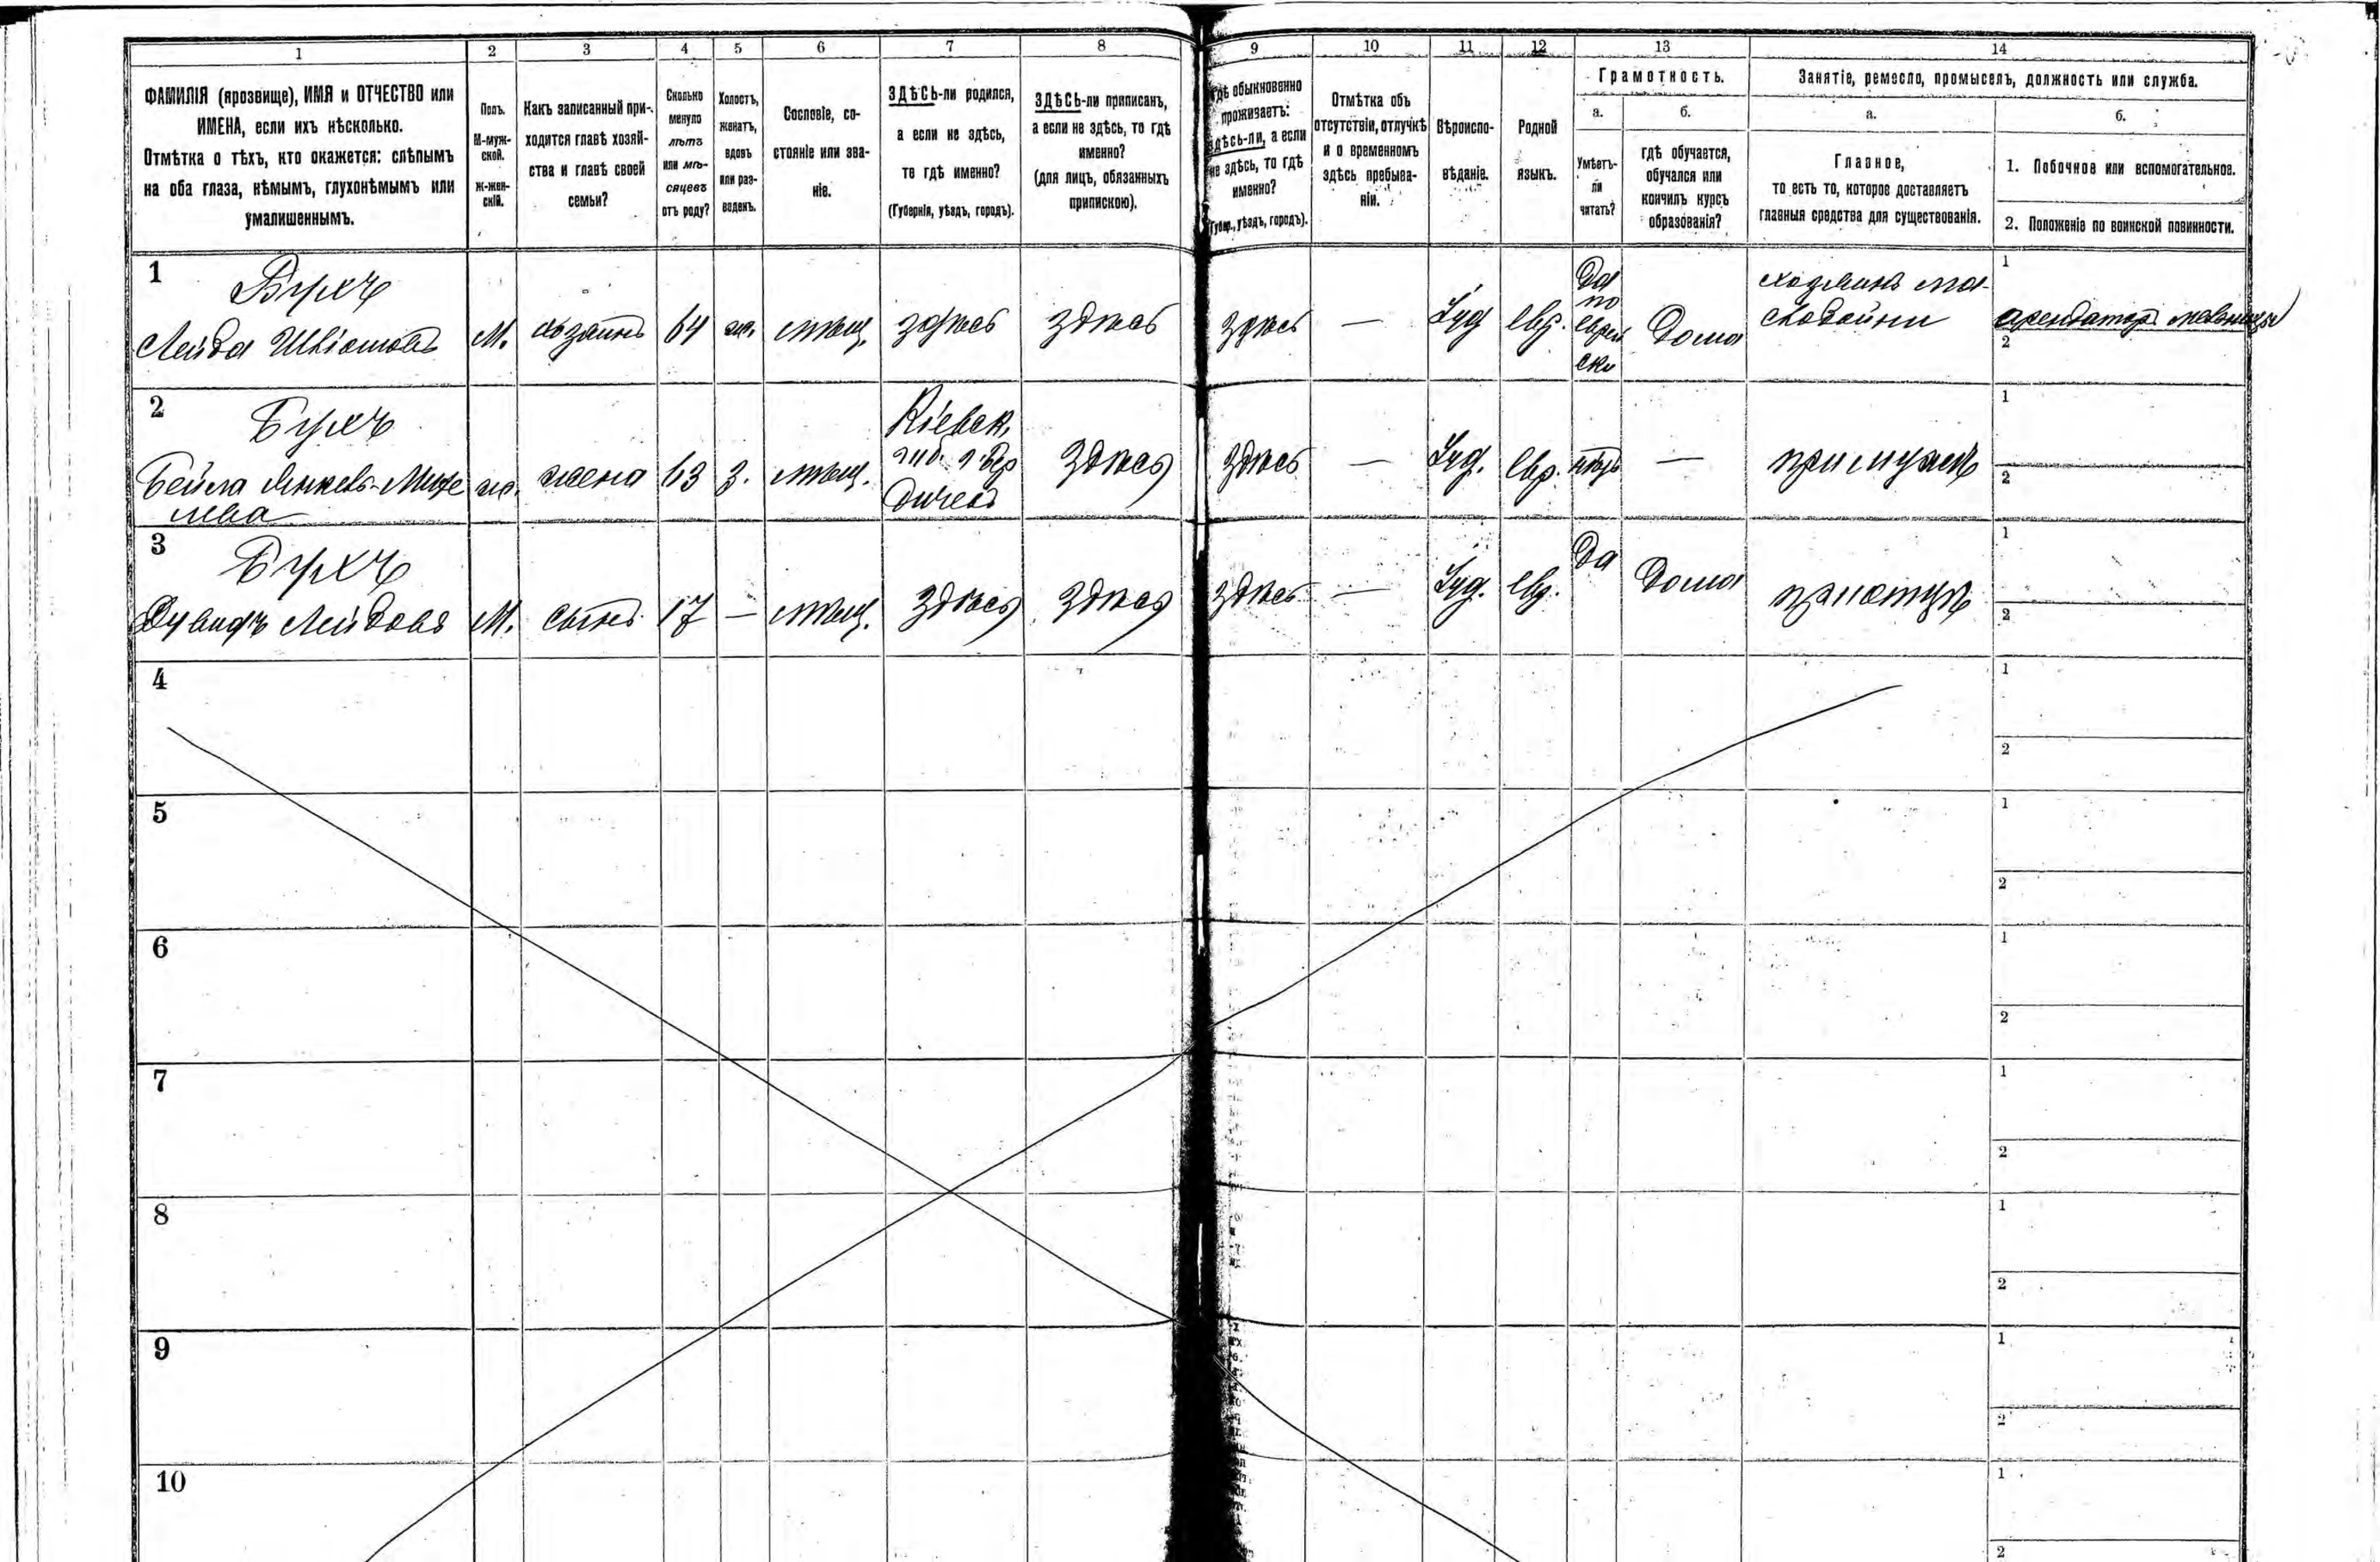 1 2 3 4 5 6 7 8 9 10 11 12 13 14
ФАМИЛІЯ (прозвище), ИМЯ и ОТЧЕСТВО или
ИМЕНА, если ихъ нѣсколько.
Отмѣтка о тѣхъ, кто окажется: слѣпымъ
на оба глаза, нѣмымъ, глухонѣмымъ или
умалишеннымъ.
Полъ.
М-муж-
ской.
Ж-жен-
скій.
Какъ записанный при-
ходится главѣ хозяй-
ства и главѣ своей
семьи?
Сколько
минуло
лѣтъ
или мѣ-
сяцевъ
отъ роду?
Холостъ,
женатъ,
вдовъ
или раз-
веденъ.
Сословіе, со-
стояніе или зва-
ніе.
ЗДѢСЬ-ли родился,
а если не здѣсь,
то гдѣ именно?
(Губернія, уѣздъ, городъ).
ЗДѢСЬ-ли приписанъ,
а если не здѣсь, то гдѣ
именно?
(для лицъ, обязанныхъ
припискою).
Гдѣ обыкновенно
проживаетъ:
здѣсь-ли, а если
не здѣсь, то гдѣ
именно?
(Губер., уѣздъ, городъ).
Отмѣтка объ
отсутствіи, отлучкѣ
и о временномъ
здѣсь пребыва-
ніи.
Вѣроиспо-
вѣданіе.
Родной
языкъ.
Грамотность.
а.
Умѣетъ-
ли
читать?
б.
гдѣ обучается,
обучался или
кончилъ курсъ
образованія?
Занятіе, ремесло, промыселъ, должность или служба.
а.
Главное,
то есть то, которое доставляетъ
главныя средства для существованія.
б.
1. Побочное или вспомогательное.
2. Положеніе по воинской повинности.
1
Бухъ
Лейба
М.
хозяинъ
64
ж.
мѣщ.
здѣсь
здѣсь
здѣсь
—
Іуд
евр.
Да
по
еврей
ски
Дома
хозяинъ ма-
слобойни
1
арендаторъ мельницы
2
2
Бухъ
Бейла
ж.
жена
63
з.
мѣщ.
Кіевск.
губ. г. Бер
дичевъ
здѣсь
здѣсь
—
Іуд.
евр.
нѣтъ
—
при мужѣ
1
2
3
Бухъ
М.
сынъ
17
—
мѣщ.
здѣсь
здѣсь
здѣсь
—
Іуд.
евр.
Да
Дома
1
2
4
1
2
5
1
2
6
1
2
7
1
2
8
1
2
9
1
2
10
1
2